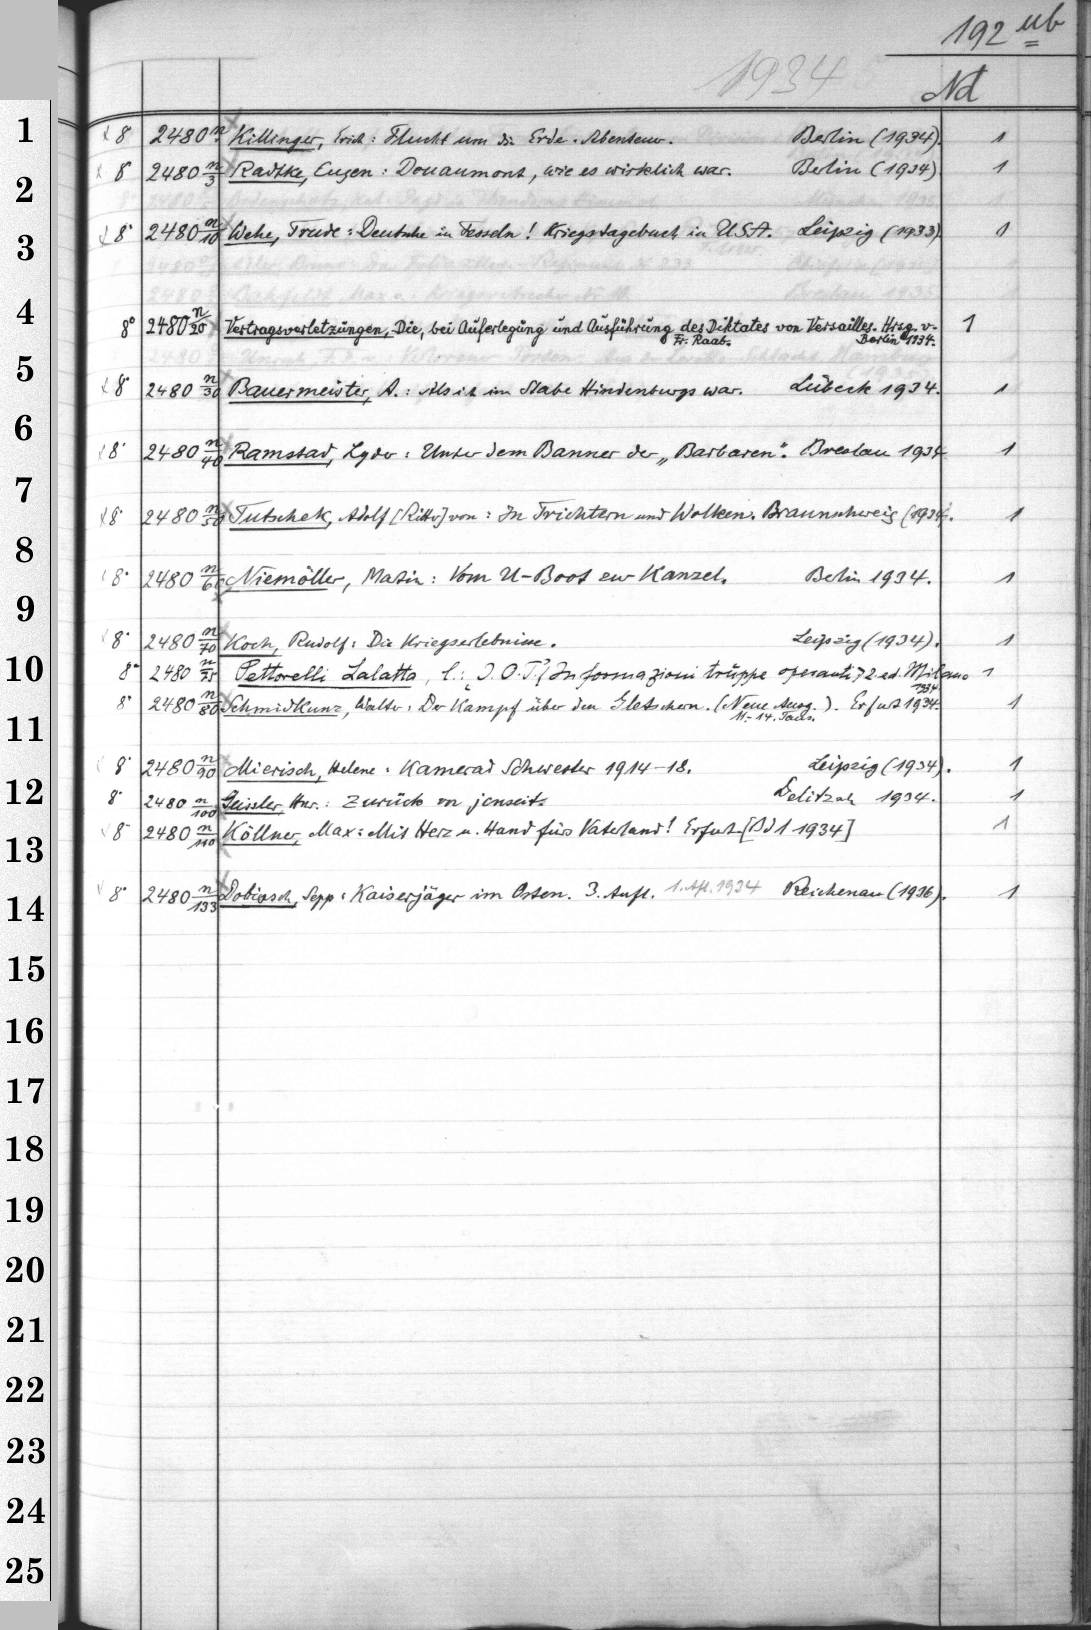 192 ub
1934
Nd
1 8° 2480 n Killinger, Erich: Flucht um die Erde. Abenteuer. Berlin (1934). 1
8° 2480 n/3 Radtke, Eugen: Douaumont, wie es wirklich war. Berlin (1934) 1
2
3 8° 2480 n/10 Wehe, Trude: Deutsche in Fesseln! Kriegstagebuch in USA. Leipzig (1933). 1
4 8° 2480 n/20 Vertragsverletzungen, Die, bei Auferlegung und Ausführung des Diktates von Versailles. Hrsg. v. 1
Fr. Raab. Berlin 1934.
5 8° 2480 n/30 Bauermeister, A.: Als ich im Stabe Hindenburgs war. Lübeck 1934. 1
6 8° 2480 n/40 Ramstad, Lyder: Unter dem Banner der „Barbaren“. Breslau 1934 1
7 8° 2480 n/50 Tutschek, Adolf [Ritter] von: In Trichtern und Wolken. Braunschweig (1934). 1
8 8° 2480 n/60 Niemöller, Martin: Vom U-Boot zur Kanzel. Berlin 1934. 1
9 8° 2480 n/70 Koch, Rudolf: Die Kriegserlebnisse. Leipzig (1934). 1
10 8° 2480 n/75 Pettorelli Lalatta, C.: I.O.T. (Informazioni truppe operanti) 2. ed. Milano 1
1934
8° 2480 n/80 Schmidkunz, Walter: Der Kampf über den Gletschern. (Neue Ausg.). Erfurt 1934. 1
11.-14. Taus.
11
12 8° 2480 n/90 Mierisch, Helene: Kamerad Schwester 1914-18. Leipzig (1934). 1
8° 2480 n/100 Geissler, Hnr.: Zurück von jenseits Delitzsch 1934. 1
13 8° 2480 n/110 Köllner, Max: Mit Herz u. Hand fürs Vaterland! Erfurt. [Bd 1 1934] 1
14 8° 2480 n/133 Dobiasch, Sepp: Kaiserjäger im Osten. 3. Aufl. 1. Afl. 1934 Reichenau (1936). 1
15
16
17
18
19
20
21
22
23
24
25